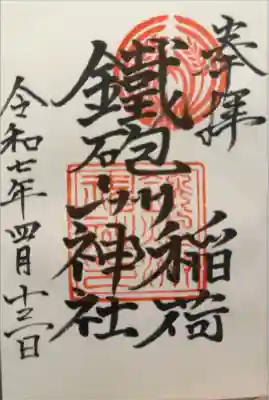 奉拝
鐵砲洲
稲荷
神社
令和七年四月十三日